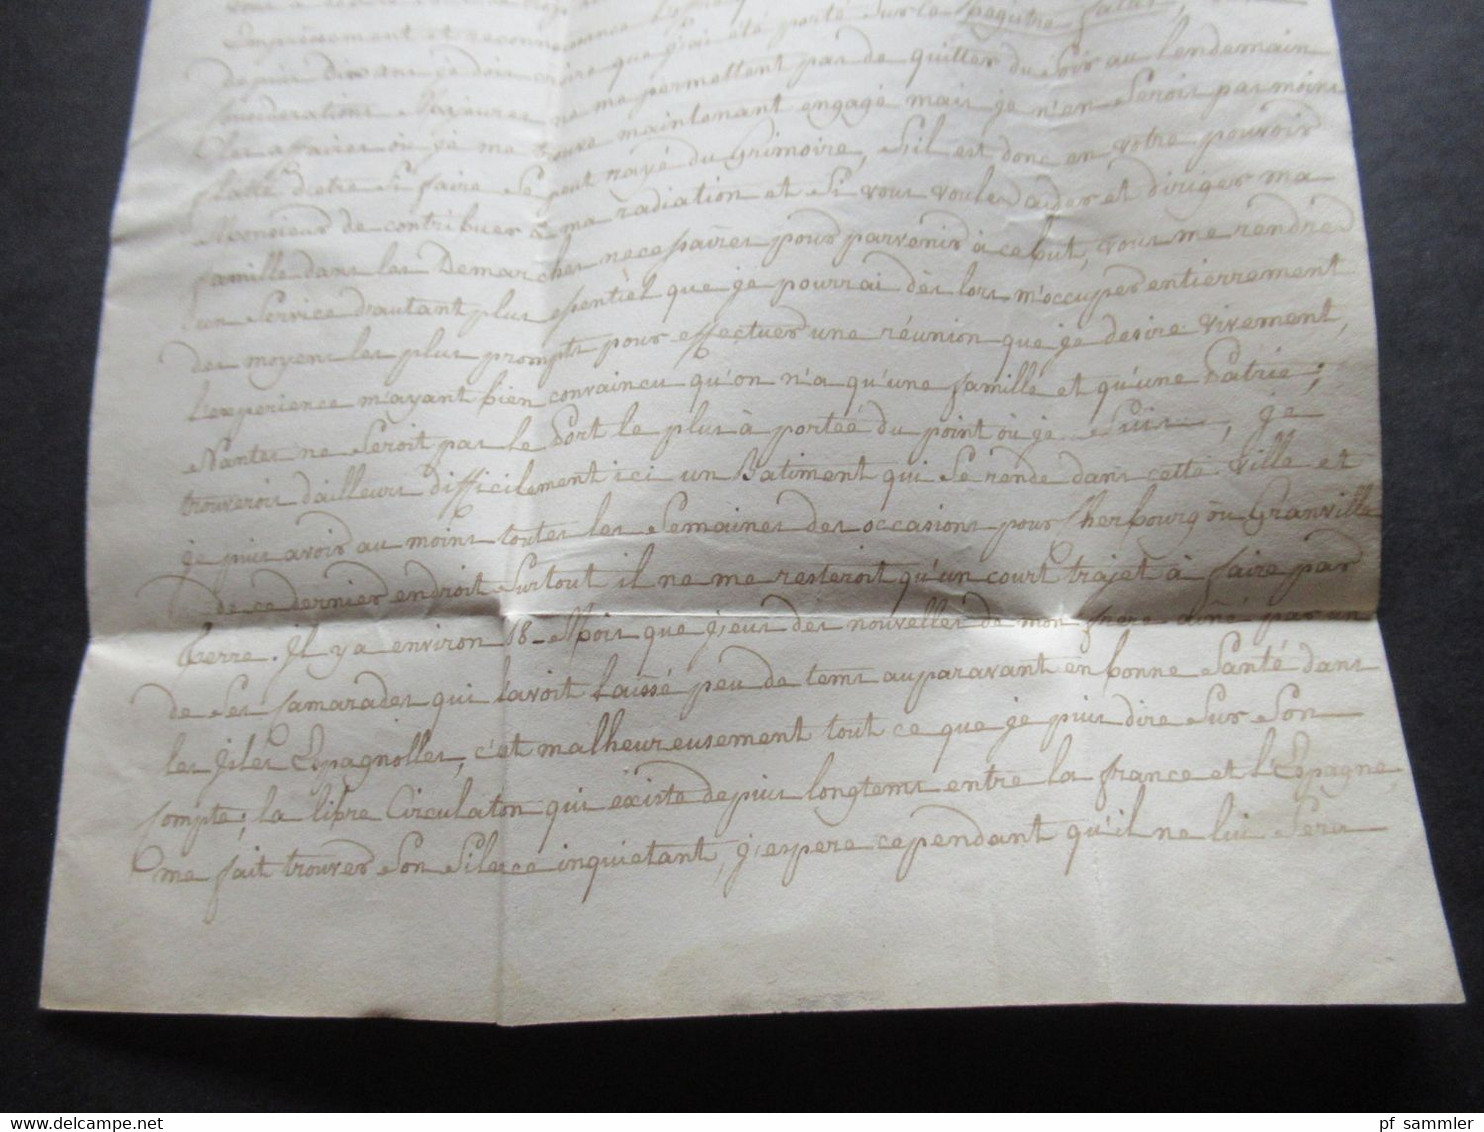 Empressement et reconnoissance
depuis dix ans je dois croire que j'ai été porté sur le Registre fatal,
Considerations Majeures ne me permettent pas de quitter du Soir au lendemain
les affaires où je me trouve maintenant engagé mais je n'en Serois pas moins
flatté d'etre Si faire Se peut rayé du Grimoire, S'il est donc en votre pouvoir
Monsieur de contribuer à ma radiation et Si vous voulez aider et diriger ma
famille dans les Demarches necessaires pour parvenir à ce but, vous me rendrez
un Service d'autant plus essentiel que je pourrai dès lors m'occuper entierrement
des moyens les plus prompts pour effectuer une réunion que je desire vivement,
l'experience m'ayant bien convaincu qu'on n'a qu'une famille et qu'une Patrie;
Nantes ne Seroit pas le Port le plus à portée du point où je Suis, je
trouverois d'ailleurs difficilement ici un Batiment qui Se rende dans cette Ville et
je puis avoir au moins toutes les Semaines des occasions pour Cherbourg où Granville
de ce dernier endroit Surtout il ne me resteroit qu'un court trajet à faire par
Terre. Il y a environ 18 Mois que j'eus des nouvelles de mon frère ainé par un
de Ses Camarades qui l'avoit laissé peu de tems auparavant en bonne Santé dans
les Isles Espagnolles, c'et malheureusement tout ce que je puis dire Sur Son
Compte; la libre Circulaton qui existe depuis longtems entre la france et l'Espagne
me fait trouver Son Silence inquietant, j'espere cependant qu'il ne lui Sera
pf sammler
delcampe.net